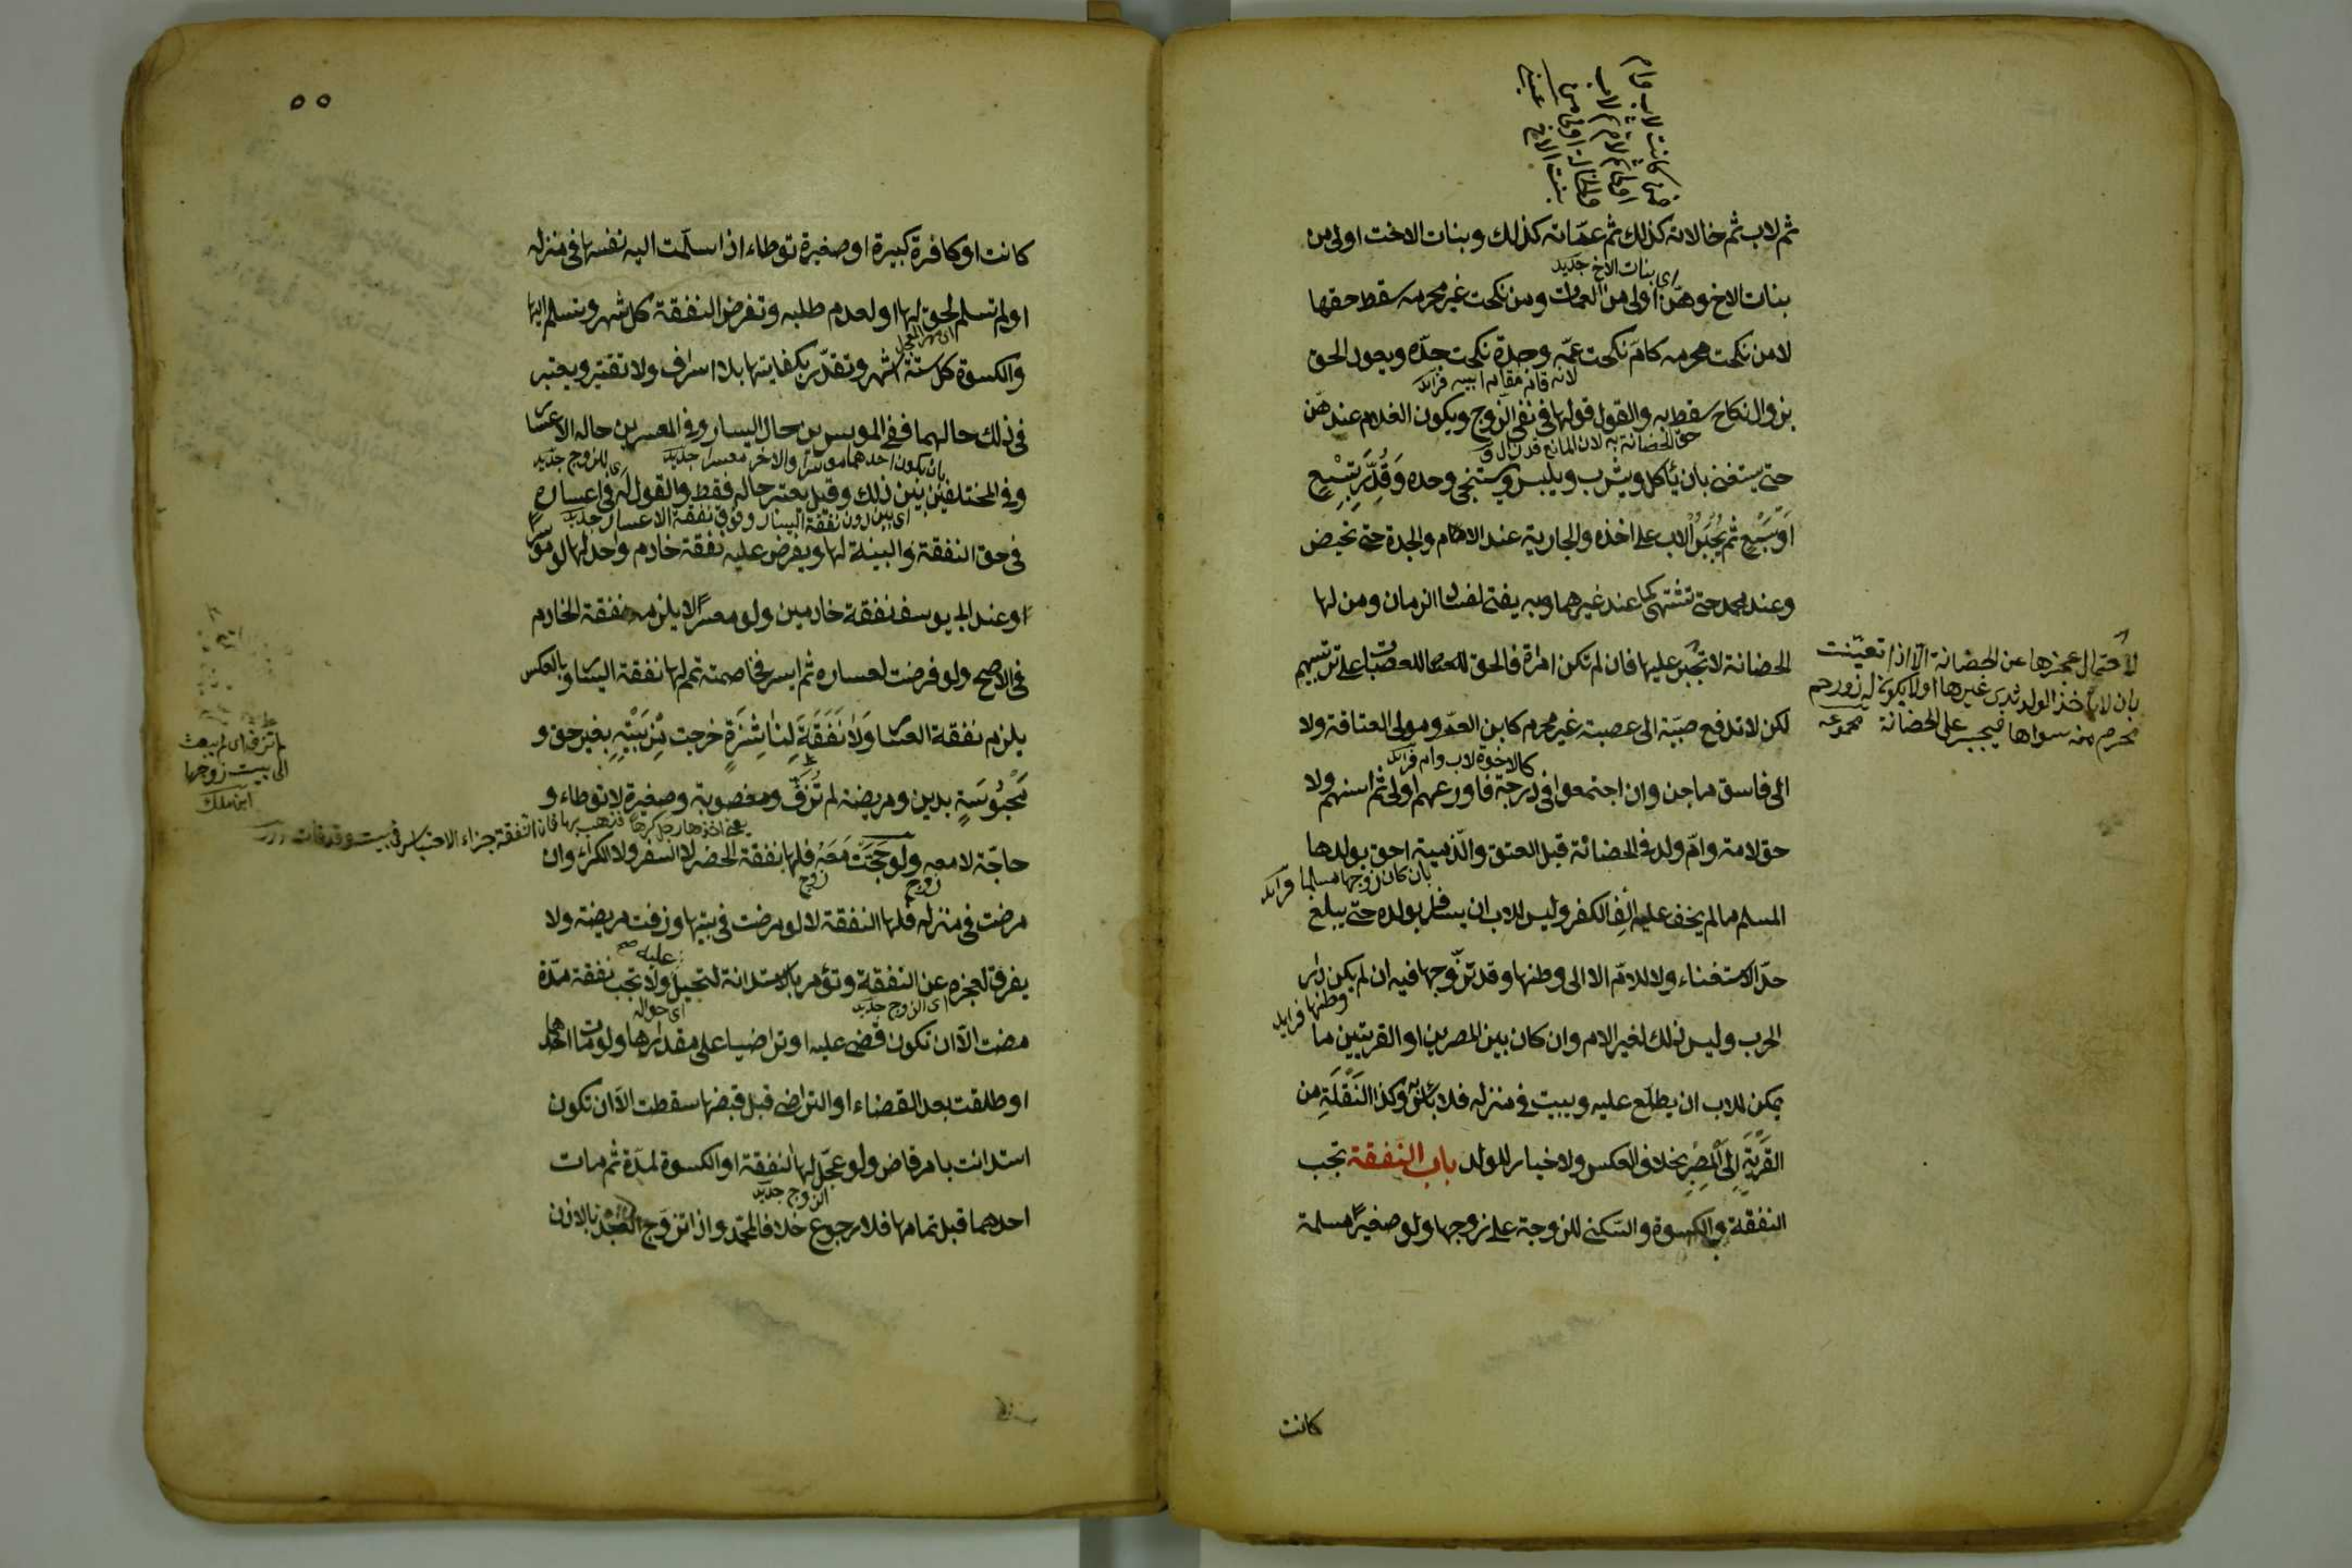 ثم لاب ثم خالاته كذلك ثم عماته كذلك وبنات الاخت اولى من
اى بنات الاخ جديد
بنات الاخ وهنّ اولى من العمات ومن نكحت غير محرمه سقط حقها
لا من نكحت محرمه كامّ نكحت عمّه وجدة نكحت جدّه ويعود الحق
لانه قائم مقام ابيه فرائد
بزوال نكاح سقط به والقول قولها فى نفى الزوج ويكون الغلام عندهنّ
حق الحضانة به لان المانع قد زال
حتى يستغنى بان يأكل ويشرب ويلبس ويستنجى وحده وَقُدِّرَ بِتِسْعٍ
اَوْ سَبْعٍ ثم يُجْبَرُ الاب على اخذه والجارية عند الام والجدة حتى تحيض
وعند محمد حتى تشتهى كما عند غيرهما وبه يفتى لفساد الزمان ومن لها
الحضانة لا تجبر عليها فان لم تكن امرأة فالحق للعصبات على ترتيبهم
لكن لا تدفع صبيّة الى عصبة غير محرم كابن العمّ ومولى العتاقة ولا
كالاخوة لاب وام فرائد
الى فاسق ماجن وان اجتمعوا فى درجة فاورعهم اولى ثم اسنهم ولا
حق لامة وامّ ولد فى الحضانة قبل العتق والذّمية احق بولدها
بان كان زوجها مسلما فرائد
المسلم ما لم يخف عليه اِلْفُ الكفر وليس للاب ان يسافر بولده حتى يبلغ
حدّ الاستغناء ولا للامّ الا الى وطنها وقد تزوجها فيه ان لم يكن دار
وطنها فرائد
الحرب وليس ذلك لغير الام وان كان بين المصرين او القريتين ما
يمكن للاب ان يطلّع عليه ويبيت فى منزله فلا بأس به وكذا النَّقْلَةِ من
القَرْيَةِ اِلَى المِصْرِ بخلاف العكس ولا خيار للولد باب النّفقة تجب
النفقة والكسوة والسّكنى للزوجة على زوجها ولو صغيرا مسلمة
كانت
لاحتمال عجزها عن الحضانة الّا اذا تعيّنت
بان لا يأخذ الولد ثدى غيرها او لا يكون له ذو رحم
محرم منه سواها فيجبر على الحضانة
٥٥
كانت او كافرة كبيرة او صغيرة توطاء اذا سلّمت اليه نفسها فى منزله
او لم تسلم لحق لها او لعدم طلبه وتفرض النفقة كل شهر وتسلم اليها
والكسوة كل ستة اشهر وتقدّر بكفايتها بلا اسراف ولا تقتير ويعتبر
فى ذلك حالهما ففى الموسرين حال اليسار وفى المعسرين حالة الاعسار
بان يكون احدهما موسرا والاخر معسرا جديد
اى للزوج جديد
وفى المختلفين بين ذلك وقيل يعتبر حاله فقط والقول له فى اعساره
اى بين دون نفقة اليسار وفوق نفقة الاعسار جديد
فى حق النفقة والبينة لها ويفرض عليه نفقة خادم واحد لها لو موسرا
وعند ابى يوسف نفقة خادمين ولو معسرا لا يلزمه نفقة الخادم
فى الاصح ولو فرضت لعساره ثم ايسر فخاصمته تمم لها نفقة اليسار وبالعكس
يلزم نفقة العسار وَلَا نَفَقَةَ لِنَاشِزَةٍ خرجت مِنْ بَيْتِهِ بغير حق و
مَحْبُوسَةٍ بدين ومريضة لم تُزَفَّ ومغصوبة وصغيرة لا توطاء و
يعنى اخذها رجل كرها فذهب بها فان النفقة جزاء الاحتباس فى بيت وقد فات درر
حاجّة لا معه ولو حَجَّتْ مَعَهُ فلها نفقة الحضر لا السفر ولا الكراء وان
زوج
زوج
مرضت فى منزله فلها النفقة لا لو مرضت فى بيتها وزفت مريضة ولا
عليه صح
يفرق لعجزه عن النفقة وتؤمر بالاستدانة لتحيل ولا تجب نفقة مدّة
اى الزوج جديد
اى حواله
مضت الّا ان تكون قضى عليه او تراضيا على مقدارها ولو مات احدهما
او طلقت بعد القضاء او التراضى قبل قبضها سقطت الّا ان تكون
استدانت بامر قاض ولو عجّل لها النفقة او الكسوة لمدّة ثم مات
الزوج جديد
احدهما قبل تمامها فلا رجوع خلافا لمحمّد واذا تزوّج العبد بالاذن
لم تزف اى لم يبعث
الى بيت زوجها
ابن ملك